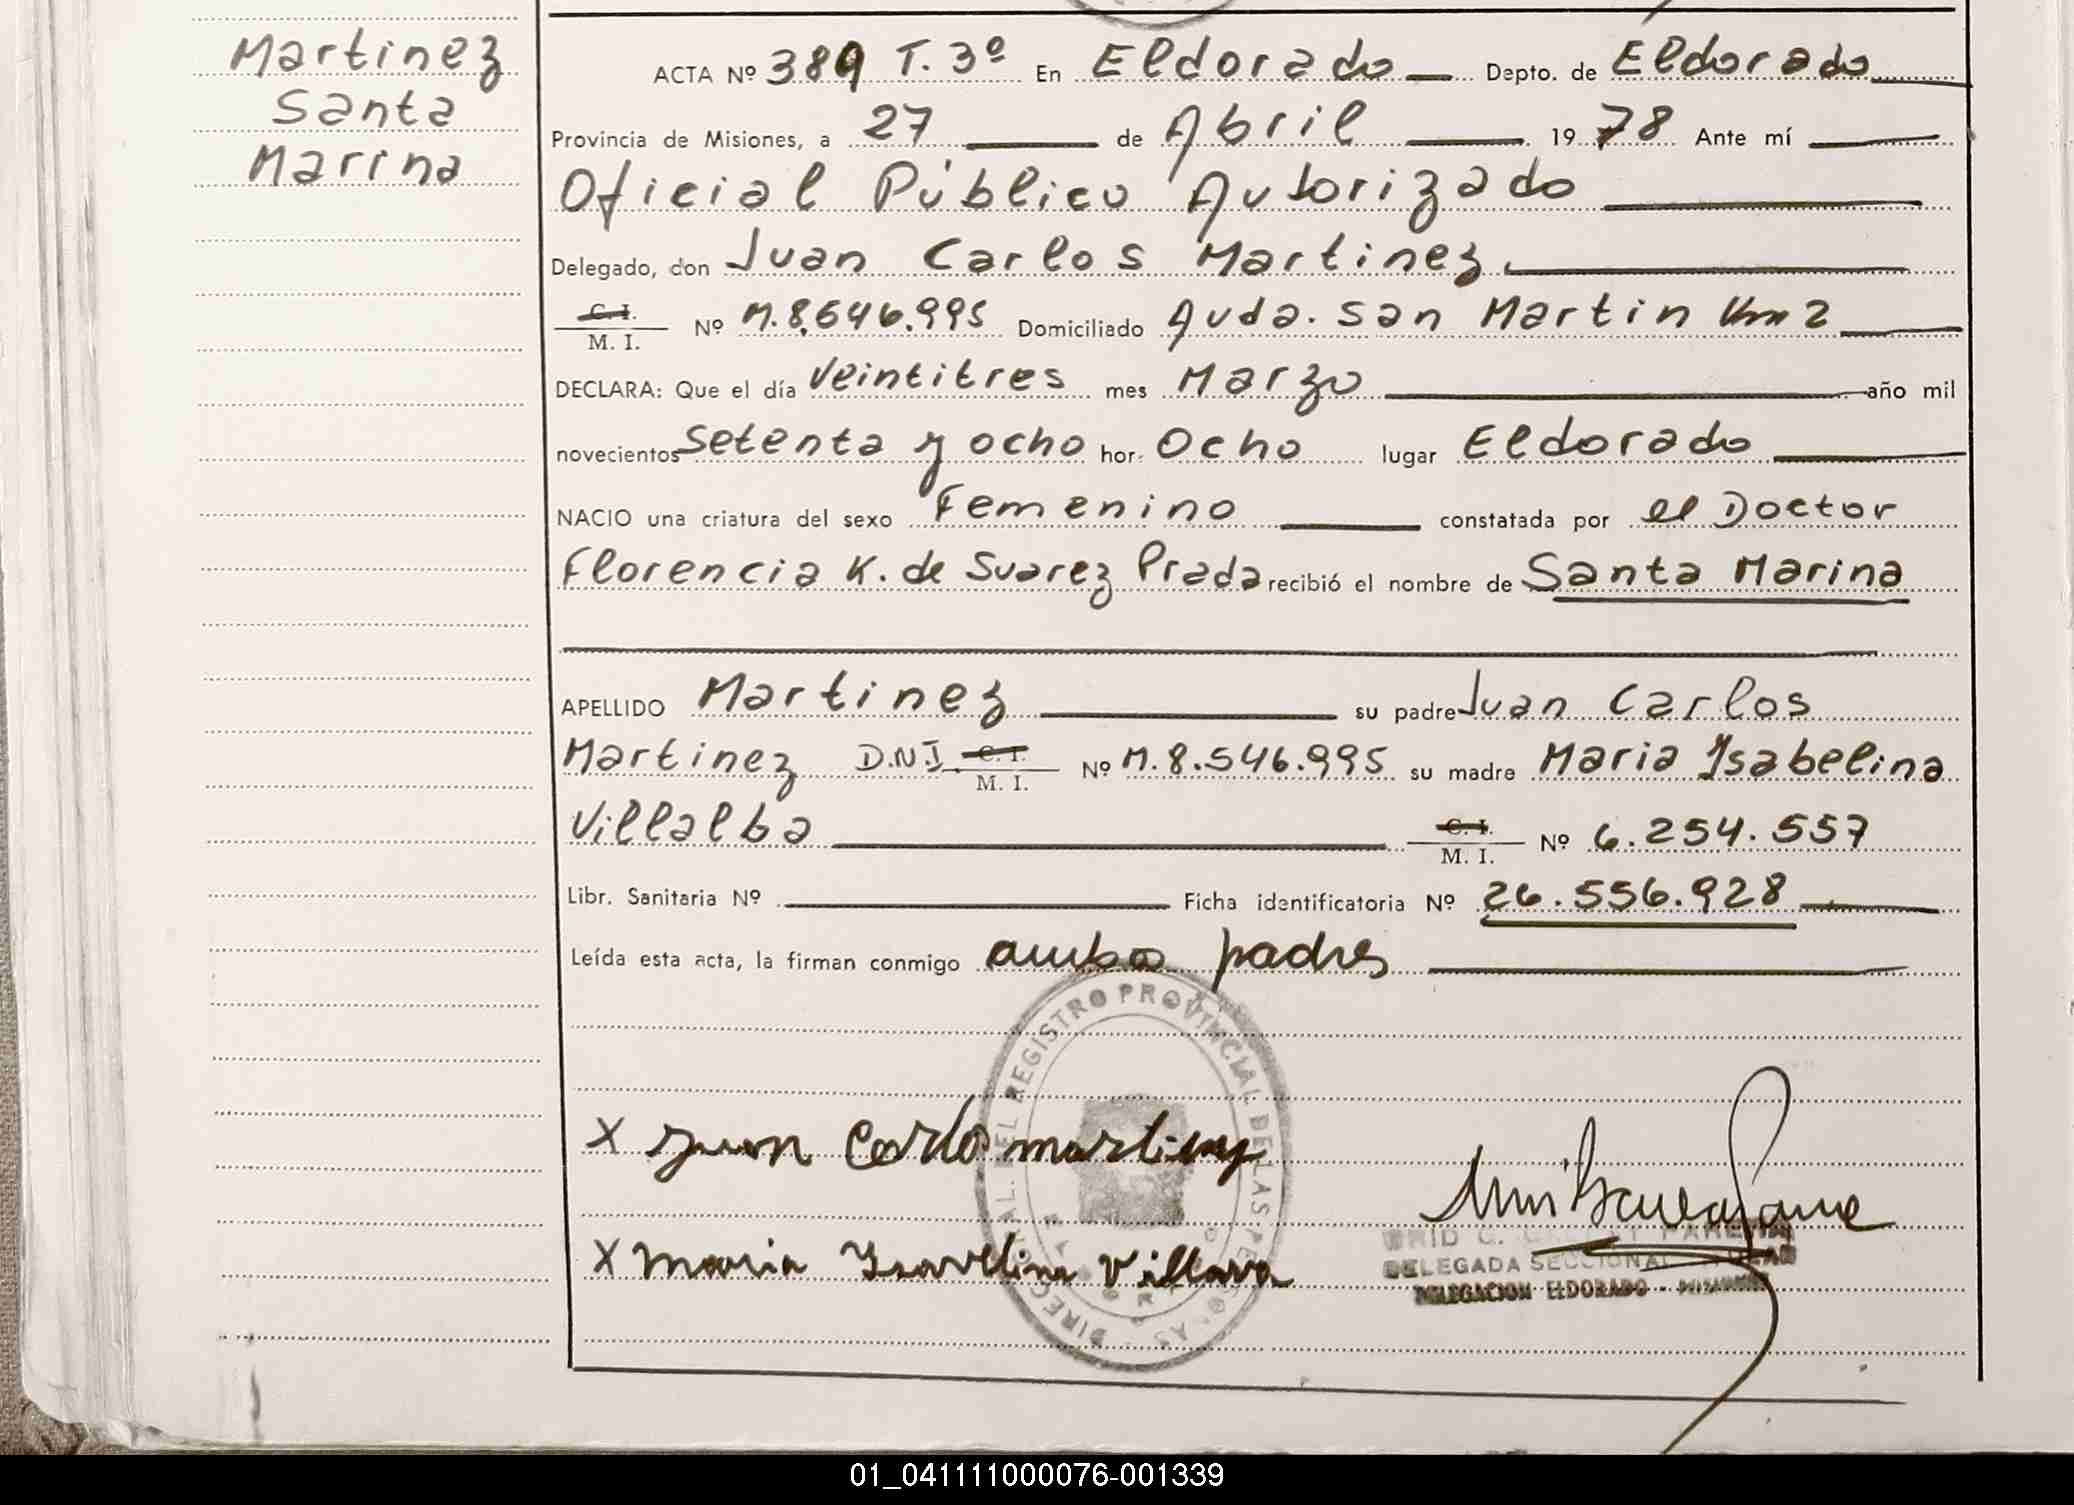 Martinez
Santa
Marina
ACTA Nº 389 T. 3º En Eldorado Depto. de Eldorado
Provincia de Misiones, a 27 de Abril 1978 Ante mí
Oficial Público Autorizado
Delegado, don Juan Carlos Martinez.
C. I. / M. I. Nº M.8.646.995 Domiciliado Avda. San Martin Km 2
DECLARA: Que el día Veintitres mes Marzo año mil
novecientos Setenta y ocho hor. Ocho lugar Eldorado
NACIO una criatura del sexo Femenino constatada por el Doctor
Florencia K. de Suarez Prada recibió el nombre de Santa Marina
APELLIDO Martinez su padre Juan Carlos
Martinez D.N.I. C. I. / M. I. Nº M.8.546.995 su madre Maria Isabelina
Villalba C. I. / M. I. Nº 6.254.557
Libr. Sanitaria Nº Ficha identificatoria Nº 26.556.928
Leída esta acta, la firman conmigo ambos padres
REGISTRO PROVINCIAL DE LAS PERSONAS
X Juan Carlo martinez
X Maria Isavelina Villava
DELEGADA SECCIONAL
DELEGACION ELDORADO - MISIONES
01_041111000076-001339